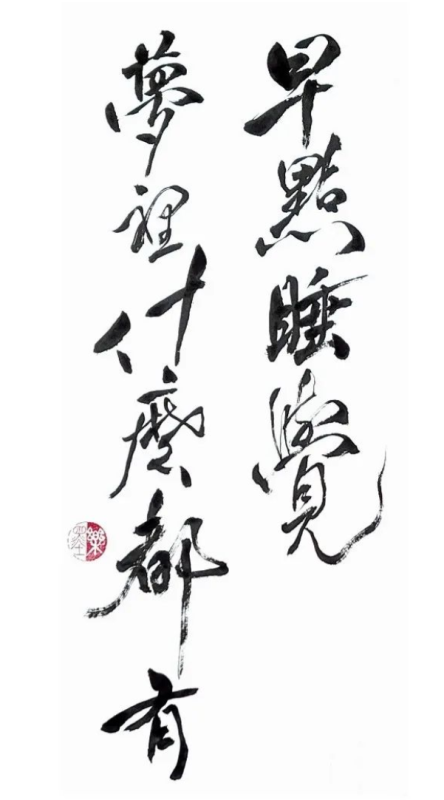 早點睡覺
夢裡什麼都有